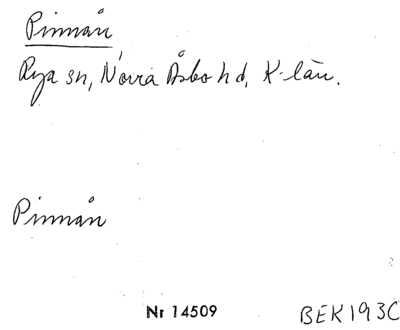 Pinnån
Rya sn, Norra Åsbo hd, K-län.
Pinnån
Nr 14509
BEK193C